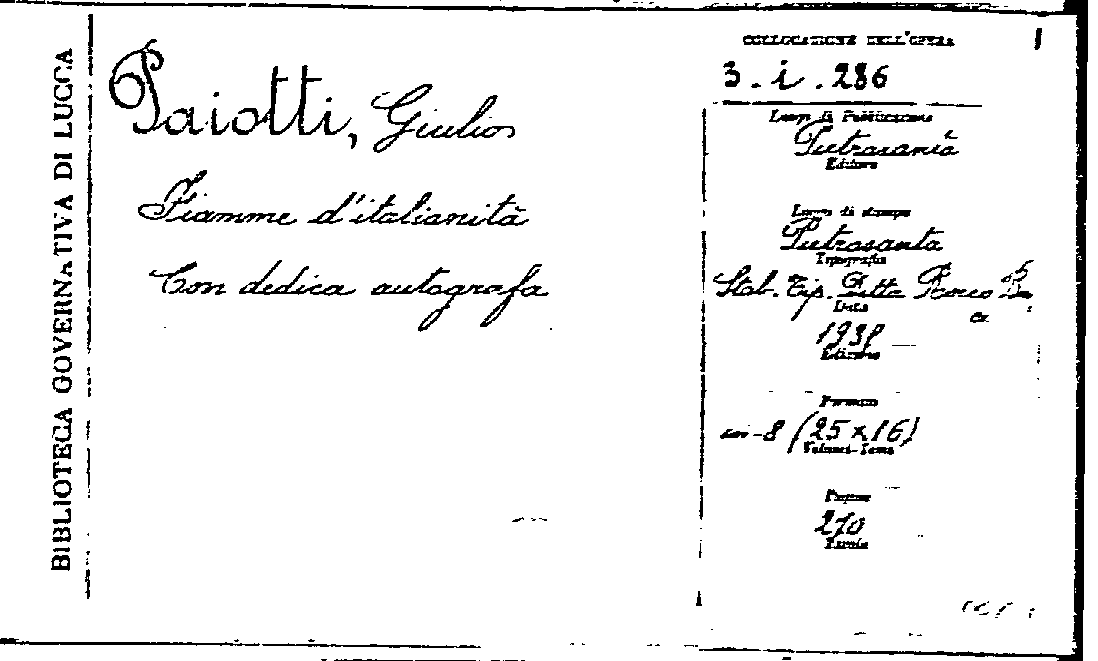 BIBLIOTECA GOVERNATIVA DI LUCCA
Paiotti, Giulio
Fiamme d'italianità
Con dedica autografa
COLLOCAZIONE DELL'OPERA
3. i. 286
Luogo di Pubblicazione
Pietrasanta
Editore
Luogo di stampa
Pietrasanta
Tipografia
Stab. Tip. Ditta
Data
Edizione
Formato
in-8 (25 x 16)
Volumi-Tomi
Pagine
210
Tavole